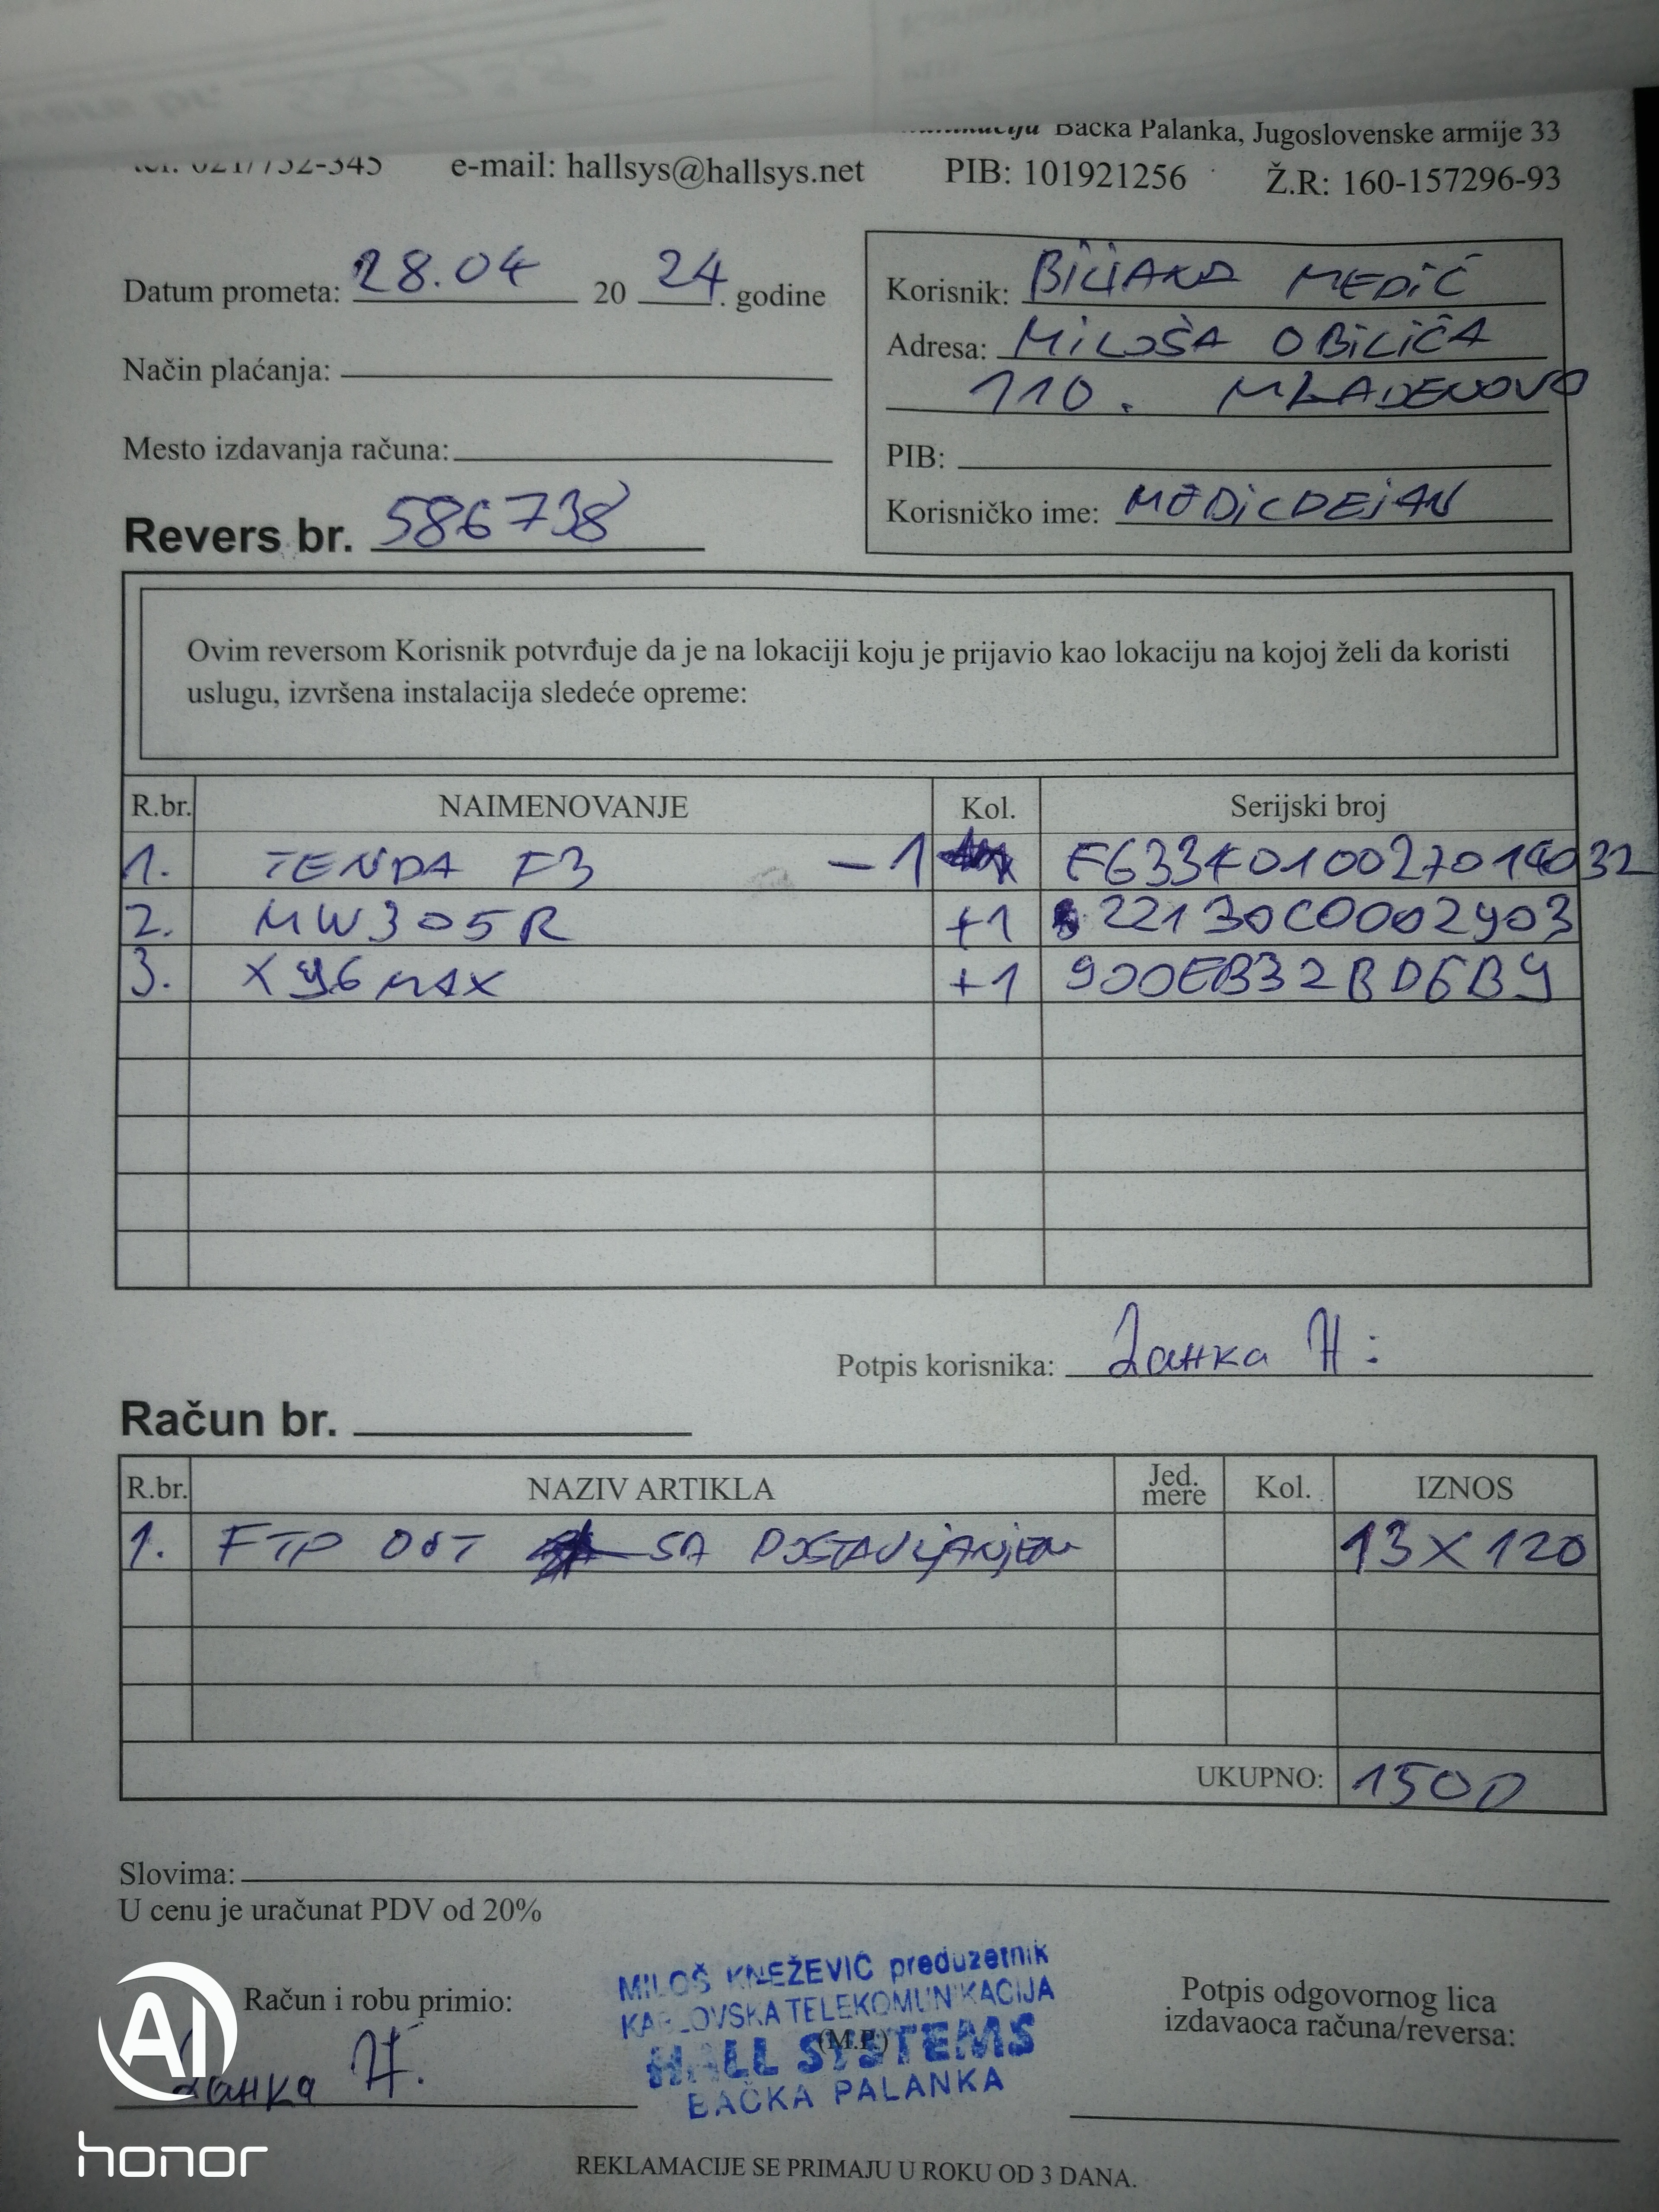 Bačka Palanka, Jugoslovenske armije 33
tel. 021/752-345 e-mail: hallsys@hallsys.net PIB: 101921256 Ž.R: 160-157296-93
Datum prometa: 28.04 2024. godine
Način plaćanja:
Mesto izdavanja računa:
Revers br. 586738
Korisnik: BILJANA MEDIĆ
Adresa: MILOŠA OBILIĆA
110. MLADENOVO
PIB:
Korisničko ime: MEDICDEJAN
Ovim reversom Korisnik potvrđuje da je na lokaciji koju je prijavio kao lokaciju na kojoj želi da koristi
uslugu, izvršena instalacija sledeće opreme:
R.br. NAIMENOVANJE Kol. Serijski broj
1. TENDA F3 -1
2. MW305R +1 22130C0002903
3. X96 MAX +1 900EB32BD6B9
Potpis korisnika: Ланка Н:
Račun br.
R.br. NAZIV ARTIKLA Jed. mere Kol. IZNOS
1. FTP OUT SA POSTAVLJANJEM 13X120
UKUPNO: 1500
Slovima:
U cenu je uračunat PDV od 20%
Račun i robu primio:
Ланка Н.
MILOŠ KNEŽEVIĆ preduzetnik
KARLOVSKA TELEKOMUNIKACIJA
(M.P.)
HALL SYSTEMS
BAČKA PALANKA
Potpis odgovornog lica
izdavaoca računa/reversa:
REKLAMACIJE SE PRIMAJU U ROKU OD 3 DANA.
AI
honor